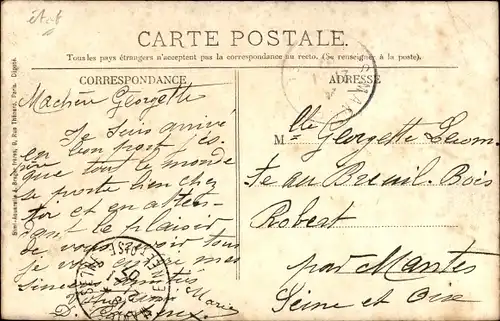 CARTE POSTALE
Tous les pays étrangers n'acceptent pas la correspondance au recto. (Se renseigner à la poste).
CORRESPONDANCE
ADRESSE
Ma chère Georgette
Je suis arrivé
en bon port j'es-
que tout le monde
se porte bien chez
toi et en atten-
ant le plaisir
de vous revoir tous
je vous envoie mes
sincères amitiés
Marie
Mlle Georgette
au Breuil. Bois
Robert
par Mantes
Seine et Oise